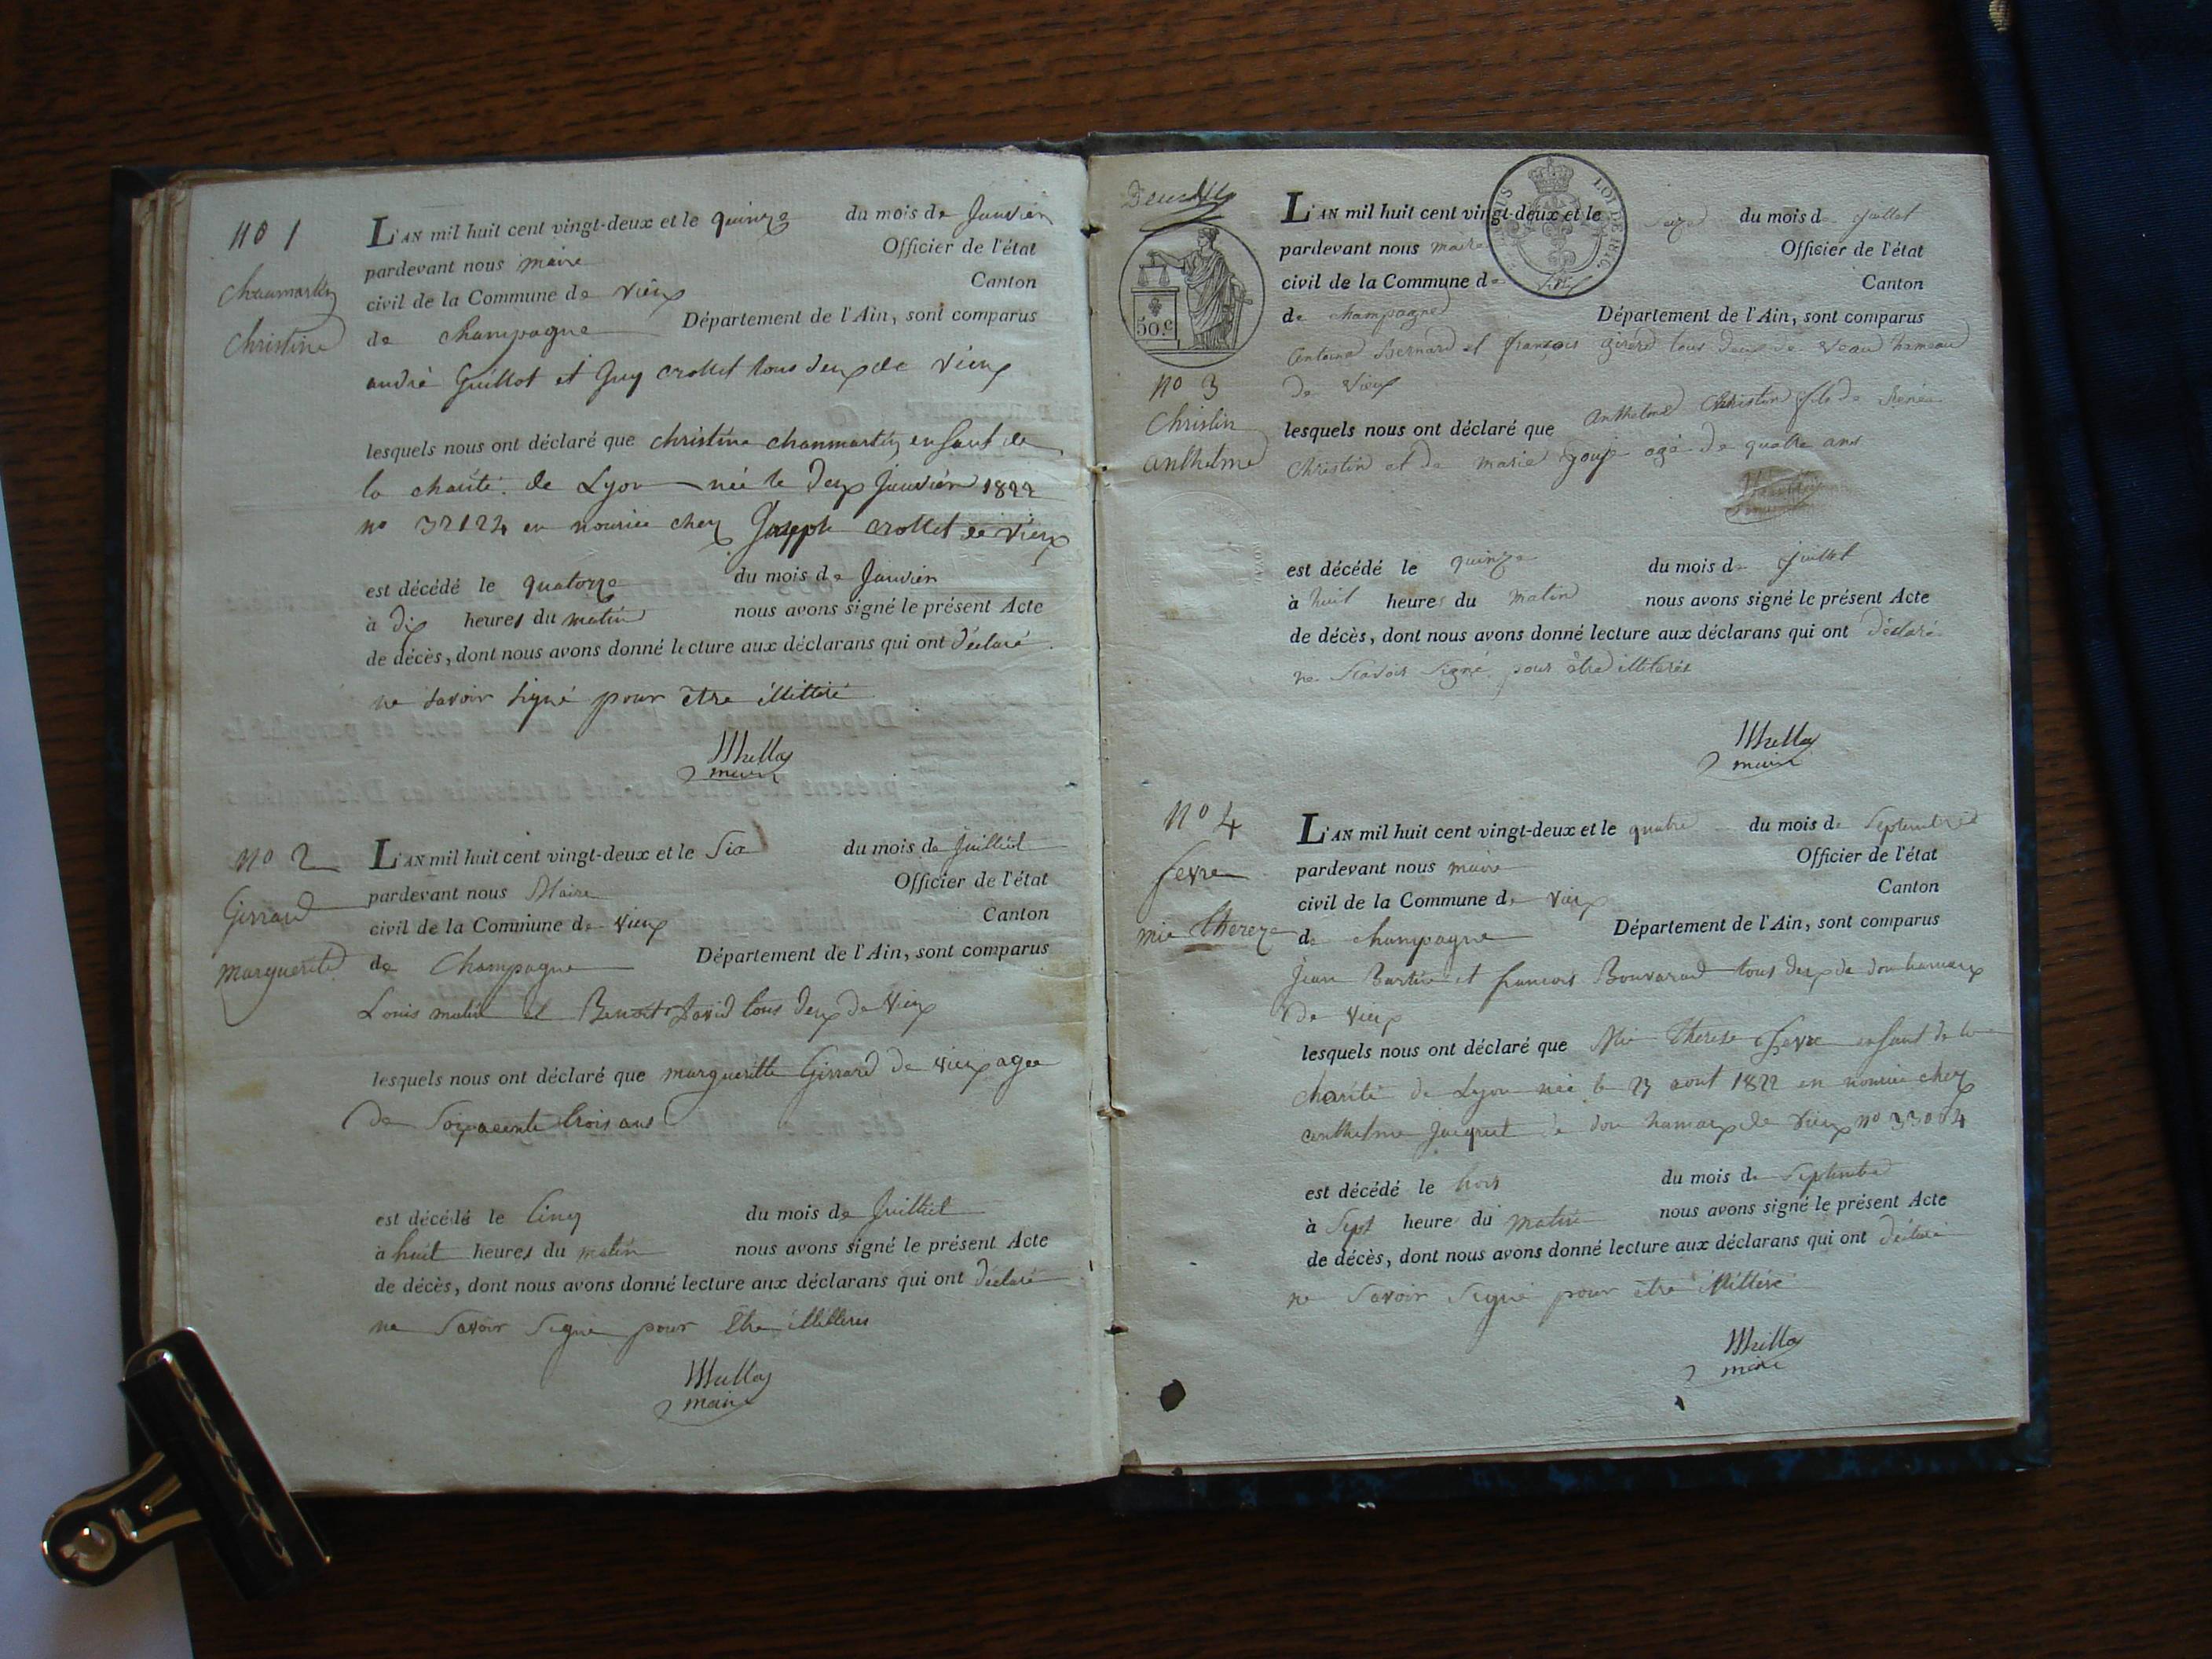 no 1
Chaumartin
Christine
L'AN mil huit cent vingt-deux et le quinze du mois de Janvier
pardevant nous maire Officier de l'état
civil de la Commune de vieux Canton
de Champagne Département de l'Ain, sont comparus
andré Guillot et Guy crollet tous deux de vieux
lesquels nous ont déclaré que christine chaumartin enfant de
la charité de Lyon née le deux Janvier 1822
no 32124 en nourice chez Joseph crollet de vieux
est décédé le quatorze du mois de Janvier
à dix heures du matin nous avons signé le présent Acte
de décès, dont nous avons donné lecture aux déclarans qui ont déclaré
ne savoir signé pour être illittéré
maire
no 2
Girrard
marguerite
L'AN mil huit cent vingt-deux et le Six du mois de Juilliet
pardevant nous Maire Officier de l'état
civil de la Commune de vieux Canton
de Champagne Département de l'Ain, sont comparus
Louis matin et Benoit David tous deux de vieux
lesquels nous ont déclaré que margueritte Girrard de vieux agee
de Soixante trois ans
est décédé le Cinq du mois de Juilliet
à huit heures du matin nous avons signé le présent Acte
de décès, dont nous avons donné lecture aux déclarans qui ont déclaré
ne Savoir Signe pour être illitteres
maire
50.c
LOI DE 1816.
no 3
Christin
anthelme
L'AN mil huit cent vingt-deux et le seize du mois de juillet
pardevant nous maire Officier de l'état
civil de la Commune de Canton
de champagne Département de l'Ain, sont comparus
antoine Bernard et françois girerd tous deux de veau hameau
de vieux
lesquels nous ont déclaré que anthelme Christin fils de Réné
Christin et de marie goujr agé de quatre ans
est décédé le quinze du mois de juillet
à huit heures du matin nous avons signé le présent Acte
de décès, dont nous avons donné lecture aux déclarans qui ont déclaré
ne Scavoir Signé pour être illiterés
maire
no 4
fevre
mie thereze
L'AN mil huit cent vingt-deux et le quatre du mois de Septembre
pardevant nous maire Officier de l'état
civil de la Commune de vieux Canton
de champagne Département de l'Ain, sont comparus
Jean Bartin et francois Bouvarad tous deux de don hameaux
de vieux
lesquels nous ont déclaré que Mie Therese fevre enfant de la
charité de Lyon née le 23 aout 1822 en nourice chez
anthelme Jacquet de don hamaux de vieux no 33064
est décédé le trois du mois de Septembre
à Sept heures du matin nous avons signé le présent Acte
de décès, dont nous avons donné lecture aux déclarans qui ont déclaré
ne Savoir Signé pour être illittéré
maire